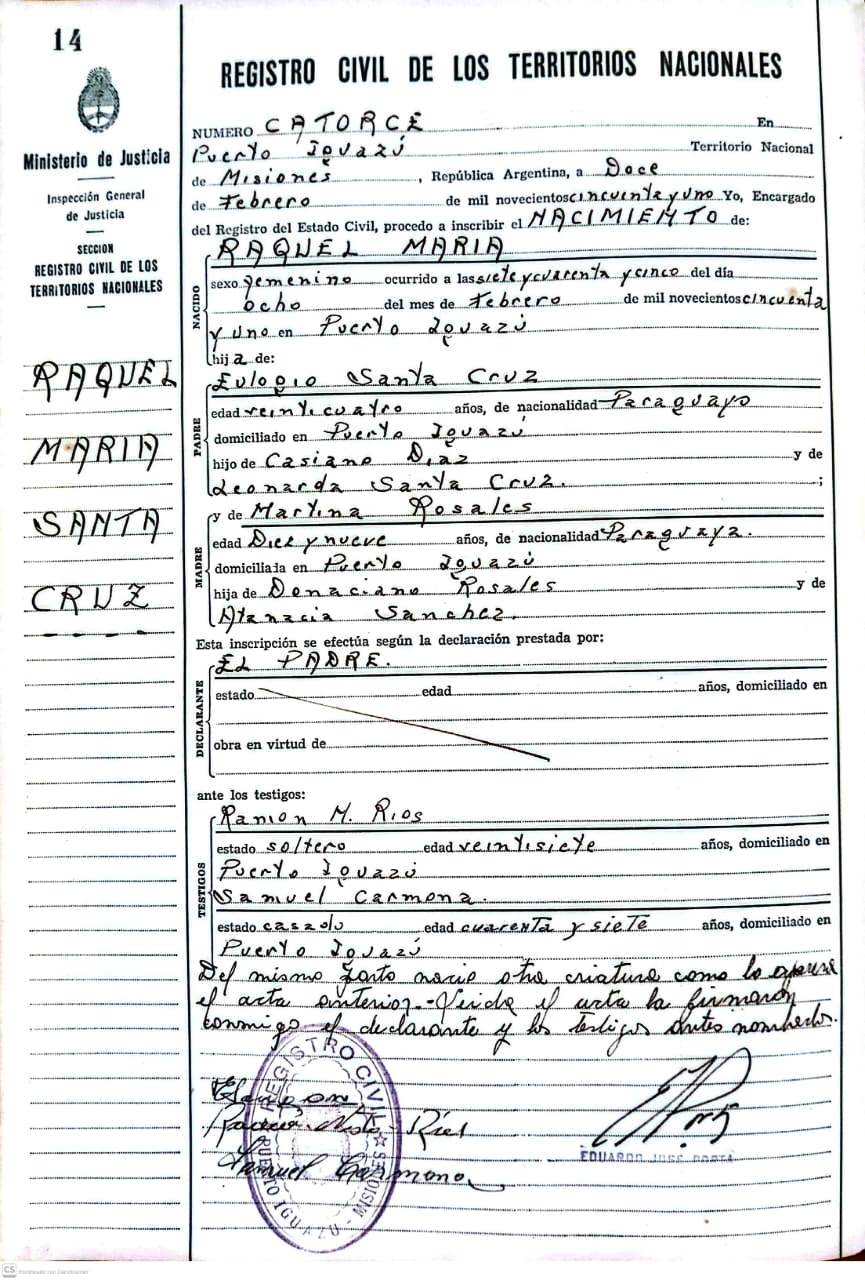 14
Ministerio de Justicia
Inspección General
de Justicia
SECCION
REGISTRO CIVIL DE LOS
TERRITORIOS NACIONALES
RAQUEL
MARIA
SANTA
CRUZ
REGISTRO CIVIL DE LOS TERRITORIOS NACIONALES
NUMERO CATORCE En
Puerto Iguazú Territorio Nacional
de Misiones, República Argentina, a Doce
de Febrero de mil novecientos cincuenta y uno Yo, Encargado
del Registro del Estado Civil, procedo a inscribir el NACIMIENTO de:
NACIDO
RAQUEL MARIA
sexo femenino ocurrido a las siete y cuarenta y cinco del día
ocho del mes de Febrero de mil novecientos cincuenta
y uno en Puerto Iguazú
hija de:
PADRE
Eulogio Santa Cruz
edad veinticuatro años, de nacionalidad Paraguayo
domiciliado en Puerto Iguazú
hijo de Casiano Diaz y de
Leonarda Santa Cruz. ;
MADRE
y de Martina Rosales
edad Diez y nueve años, de nacionalidad Paraguaya.
domiciliada en Puerto Iguazú
hija de Donaciano Rosales y de
Atanacia Sanchez.
Esta inscripción se efectúa según la declaración prestada por:
DECLARANTE
EL PADRE.
estado edad años, domiciliado en
obra en virtud de
ante los testigos:
TESTIGOS
Ramon M. Rios
estado soltero edad veintisiete años, domiciliado en
Puerto Iguazú
Samuel Carmona.
estado casado edad cuarenta y siete años, domiciliado en
Puerto Iguazú
Del mismo parto nacio otra criatura como lo
el acta anterior.- Leida el acta la firmaron
conmigo el declarante y los testigos antes nombrados.
REGISTRO CIVIL
PUERTO IGUAZU - MISIONES
Rios
Samuel Carmona
EDUARDO JOSE PORTA
CS